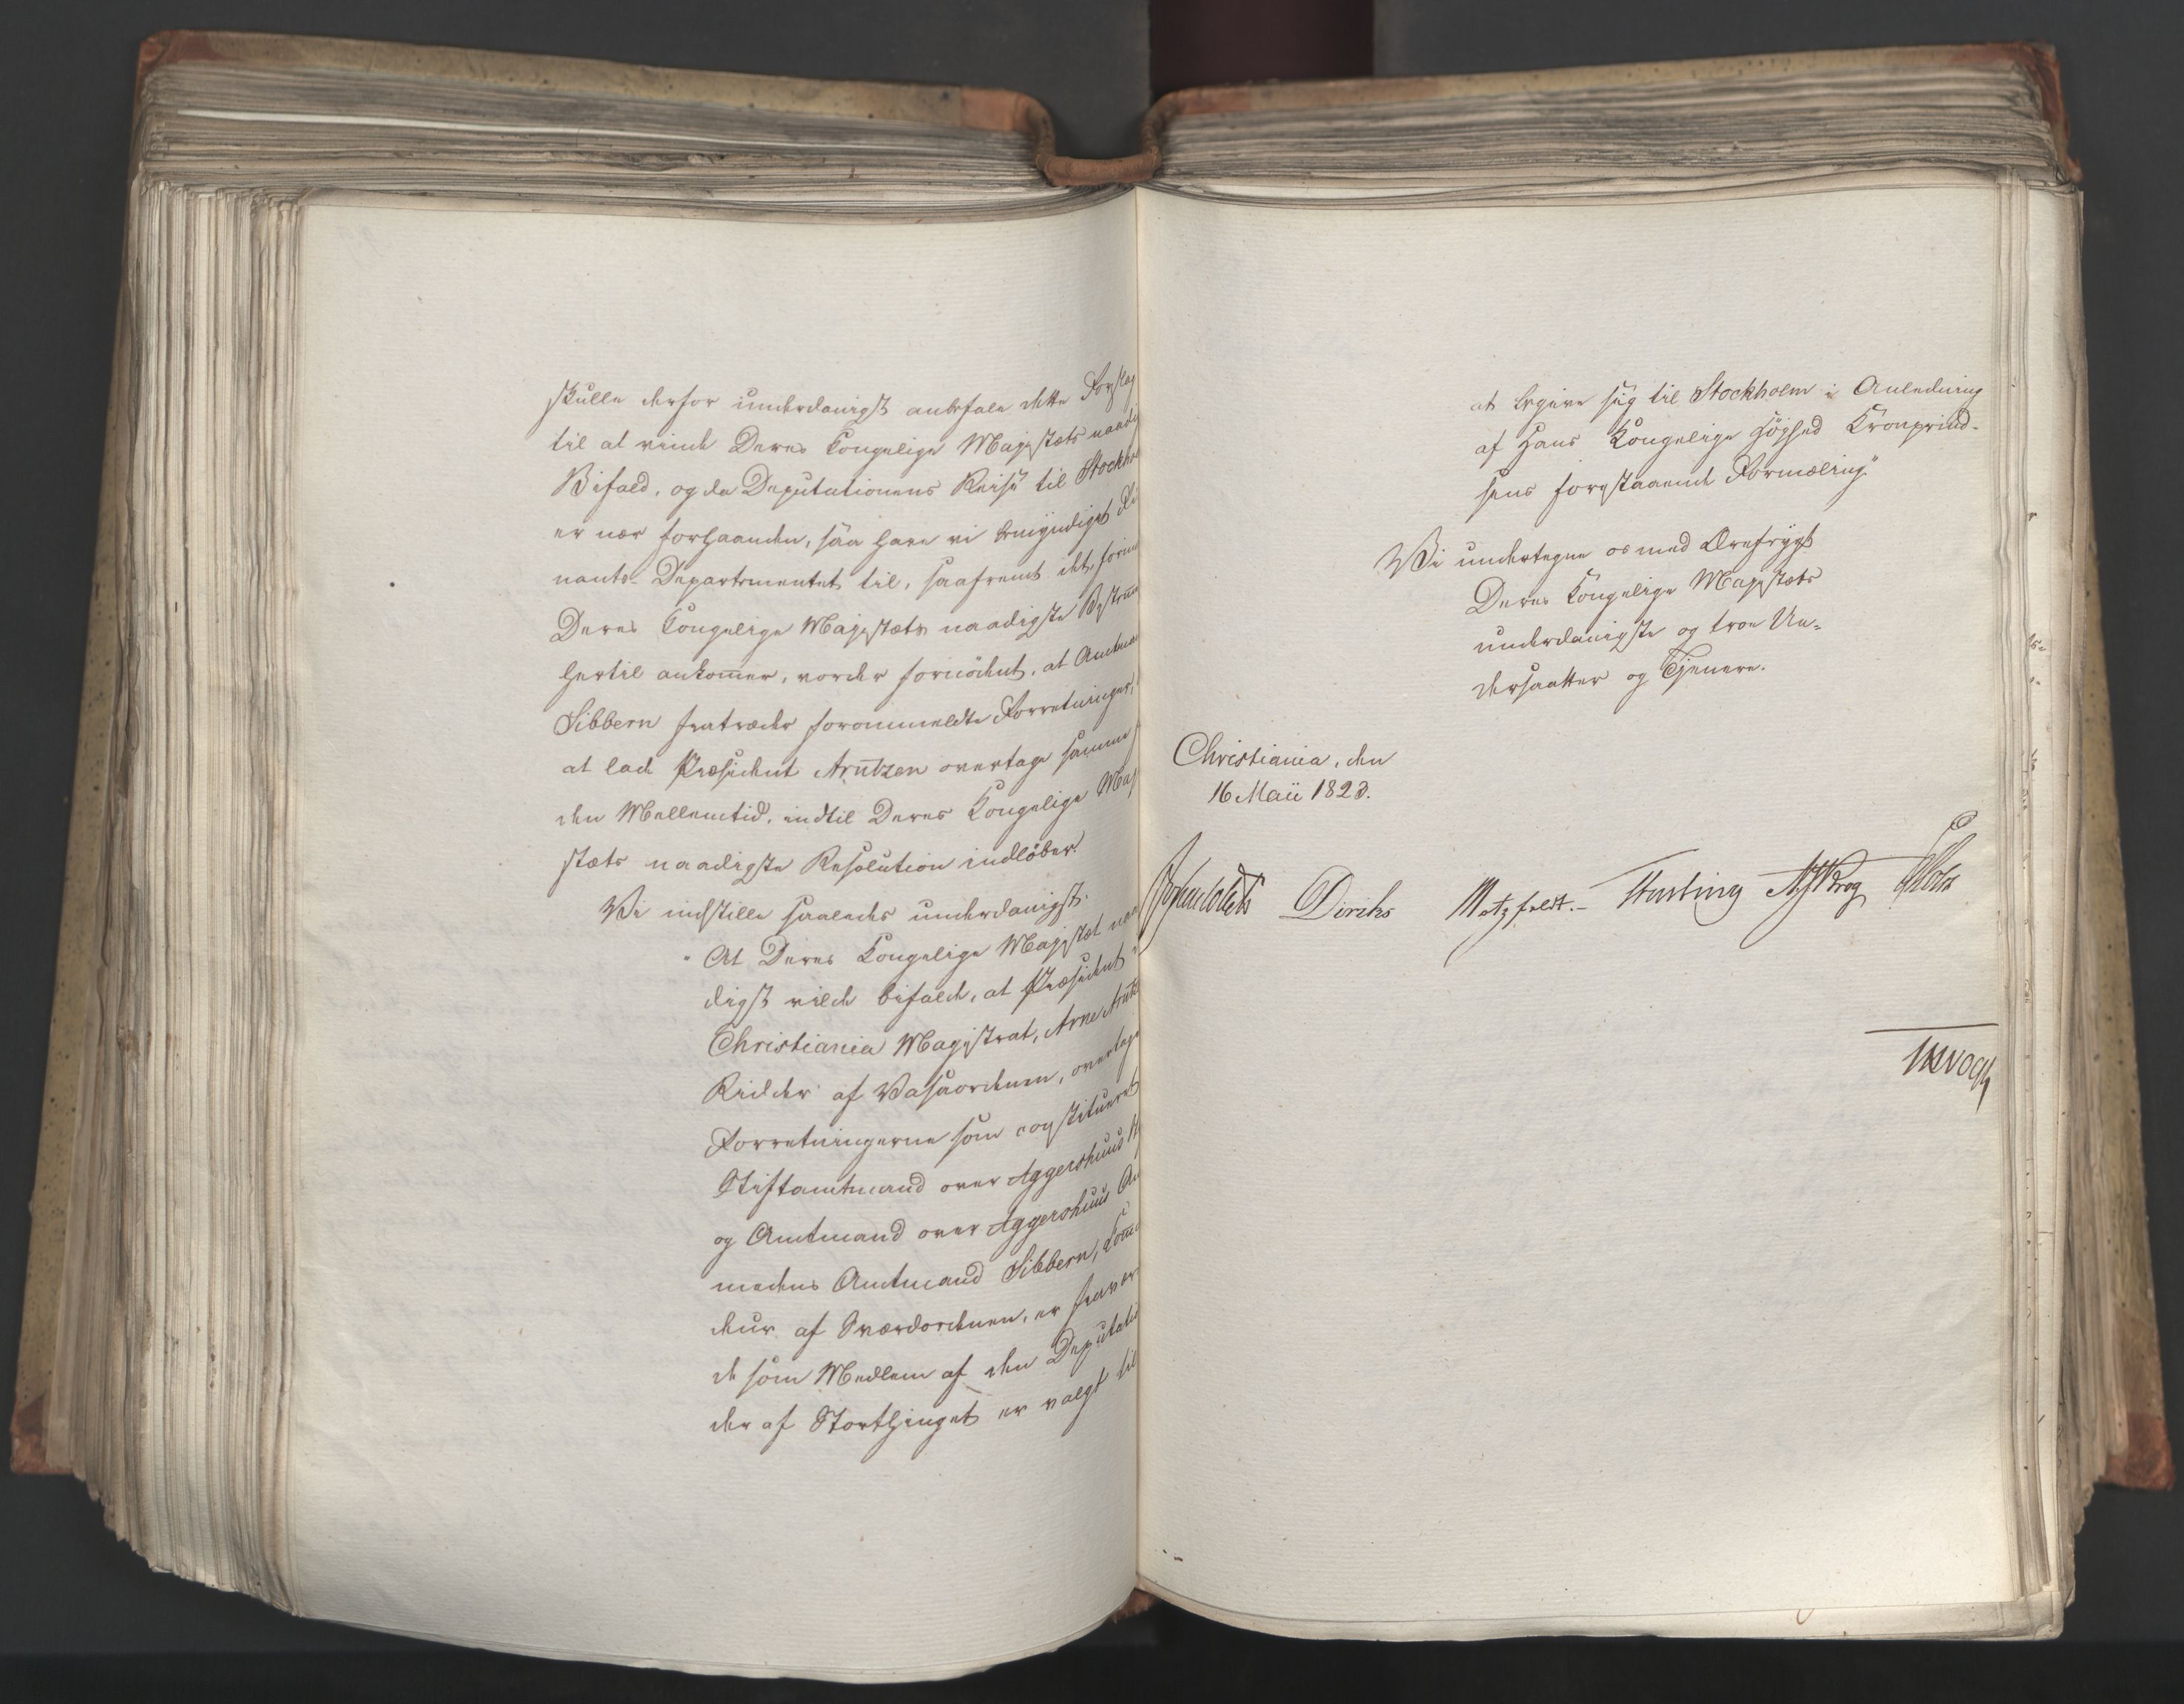 skulle derfor underdanigst anbefale dette Forslag
til at vinde Deres Kongelige Majestæts naadig
Bifald, og da Deputationens Reise til Stockho
er nær forhaanden, saa have vi bemyndiget Fi
nants-Departementet til, saafremt det, forin
Deres Kongelige Majestæts naadigste Bestem
hertil ankommer, vorder fornödent, at Amtma
Sibbern fratræder forommeldte Forretninger,
at lade Præsident Arntzen overtage samme
den Mellemtid, indtil Deres Kongelige Maj
stæts naadigste Resolution indlöber.
Vi indstille saaledes underdanigst:
"At Deres Kongelige Majestæt naa
digst vilde bifalde, at Præsident
Christiania Magistrat, Arne Arntz
Ridder af Vasaordenen, overtage
Forretningerne som constitueret
Stiftamtmand over Aggershuus St
og Amtmand over Aggershuus Am
medens Amtmand Sibbern, Com̄
deur af Sværdordenen, er fravær
de som Medlem af den Deputatio
der af Storthinget er valgt til
at begive sig til Stockholm i Anledning
af Hans Kongelige Höihed Kronprind-
sens forestaaende Formæling."
Vi undertegne os med Ærefrygt
Deres Kongelige Majestæts
underdanigste og troe Un=
dersaatter og Tjenere.
Christiania, den
16 Maii 1823.
Diriks Motzfeldt.- Fasting Krog Holst
Vogt